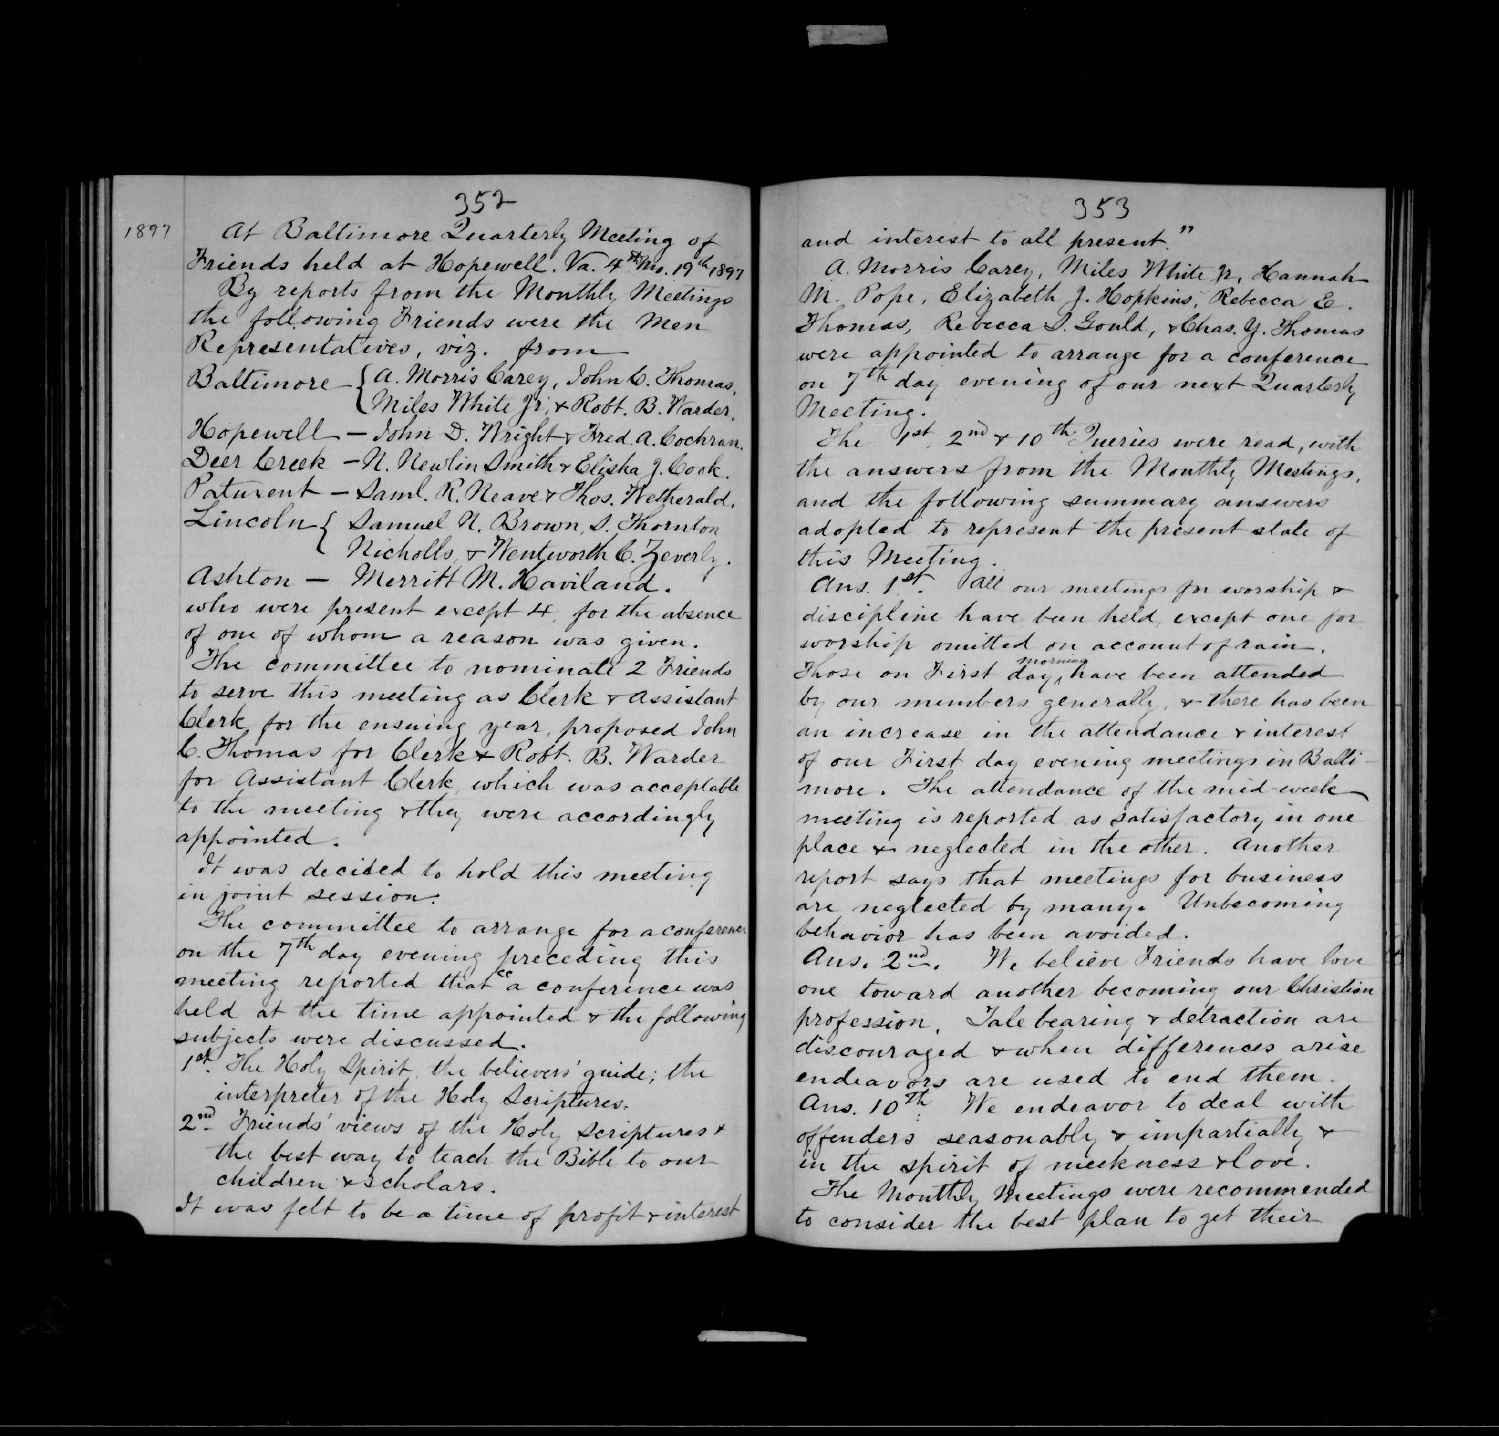 352
1897
At Baltimore Quarterly Meeting of
Friends held at Hopewell. Va. 4th Mo. 19th 1897
By reports from the Monthly Meetings
the following Friends were the Men
Representatives, viz. from
Baltimore { A. Morris Carey, John C. Thomas,
Miles White Jr, & Robt. B. Warder.
Hopewell — John D. Wright & Fred. A. Cochran.
Deer Creek — N. Newlin Smith & Elisha J. Cook.
Patuxent — Saml. R. Neave & Thos. Wetherald.
Lincoln { Samuel N. Brown, S. Thornton
Nicholls, & Wentworth C. Zeverly.
Ashton — Merritt M. Haviland.
who were present except 4, for the absence
of one of whom a reason was given.
The committee to nominate 2 Friends
to serve this meeting as Clerk & Assistant
Clerk for the ensuing year, proposed John
C. Thomas for Clerk & Robt. B. Warder
for Assistant Clerk, which was acceptable
to the meeting & they were accordingly
appointed.
It was decided to hold this meeting
in joint session.
The committee to arrange for a conference
on the 7th day evening preceding this
meeting reported that "a conference was
held at the time appointed & the following
subjects were discussed.
1st. The Holy Spirit, the believers' guide; the
interpreter of the Holy Scriptures.
2nd Friends' views of the Holy Scriptures &
the best way to teach the Bible to our
children & scholars.
It was felt to be a time of profit & interest
353
and interest to all present."
A. Morris Carey, Miles White Jr, Hannah
M. Pope, Elizabeth J. Hopkins, Rebecca E.
Thomas, Rebecca S. Gould, & Chas. Y. Thomas
were appointed to arrange for a conference
on 7th day evening of our next Quarterly
Meeting.
The 1st, 2nd & 10th Queries were read, with
the answers from the Monthly Meetings,
and the following summary answers
adopted to represent the present state of
this Meeting.
Ans. 1st. All our meetings for worship &
discipline have been held, except one for
worship omitted on account of rain.
Those on First day morning have been attended
by our members generally, & there has been
an increase in the attendance & interest
of our First day evening meetings in Balti-
more. The attendance of the mid-week
meeting is reported as satisfactory in one
place & neglected in the other. Another
report says that meetings for business
are neglected by many. Unbecoming
behavior has been avoided.
Ans. 2nd. We believe Friends have love
one toward another becoming our Christian
profession. Tale bearing & detraction are
discouraged & when differences arise
endeavors are used to end them.
Ans. 10th. We endeavor to deal with
offenders seasonably & impartially &
in the spirit of meekness & love.
The Monthly Meetings were recommended
to consider the best plan to get their